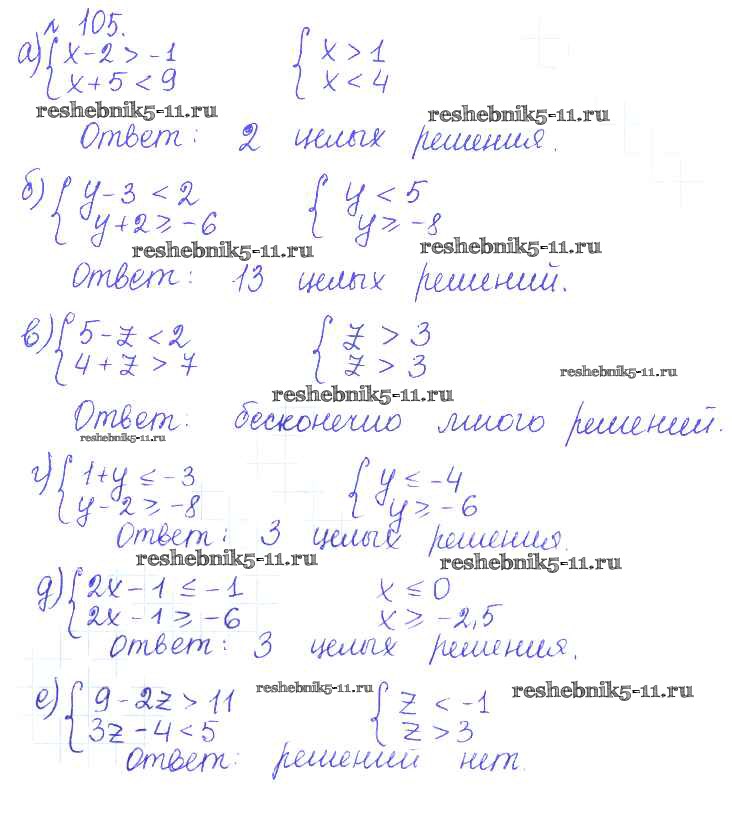 № 105.
а) { x-2 > -1 { x > 1
x+5 < 9 x < 4
reshebnik5-11.ru reshebnik5-11.ru
Ответ: 2 целых решения.
б) { y-3 < 2 { y < 5
y+2 ≥ -6 y ≥ -8
reshebnik5-11.ru reshebnik5-11.ru
Ответ: 13 целых решений.
в) { 5-z < 2 { z > 3
4+z > 7 z > 3
reshebnik5-11.ru reshebnik5-11.ru
Ответ: бесконечно много решений.
reshebnik5-11.ru
г) { 1+y ≤ -3 { y ≤ -4
y-2 ≥ -8 y ≥ -6
Ответ: 3 целых решения.
reshebnik5-11.ru reshebnik5-11.ru
д) { 2x-1 ≤ -1 x ≤ 0
2x-1 ≥ -6 x ≥ -2,5
Ответ: 3 целых решения.
reshebnik5-11.ru reshebnik5-11.ru
е) { 9-2z > 11 { z < -1
3z-4 < 5 z > 3
Ответ: решений нет.